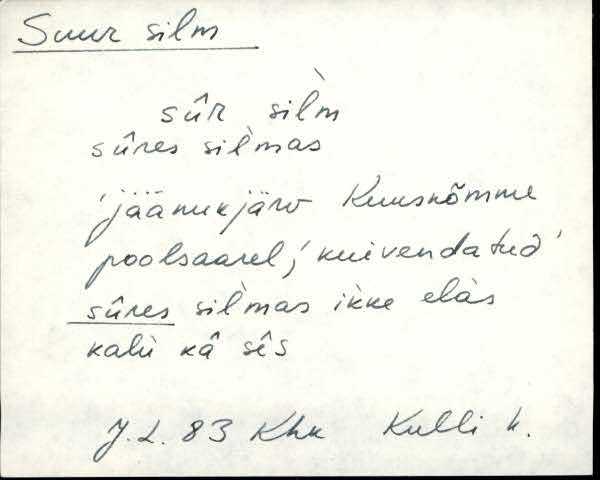 Suur silm
sûr sil̀m
sûres sil̀mas
'jäänukjärv Kuusnõmme
poolsaarel, kuivendatud'
sûres sil̀mas ikke elàs
kalù kâ sês
J.L. 83 Khk Kulli k.